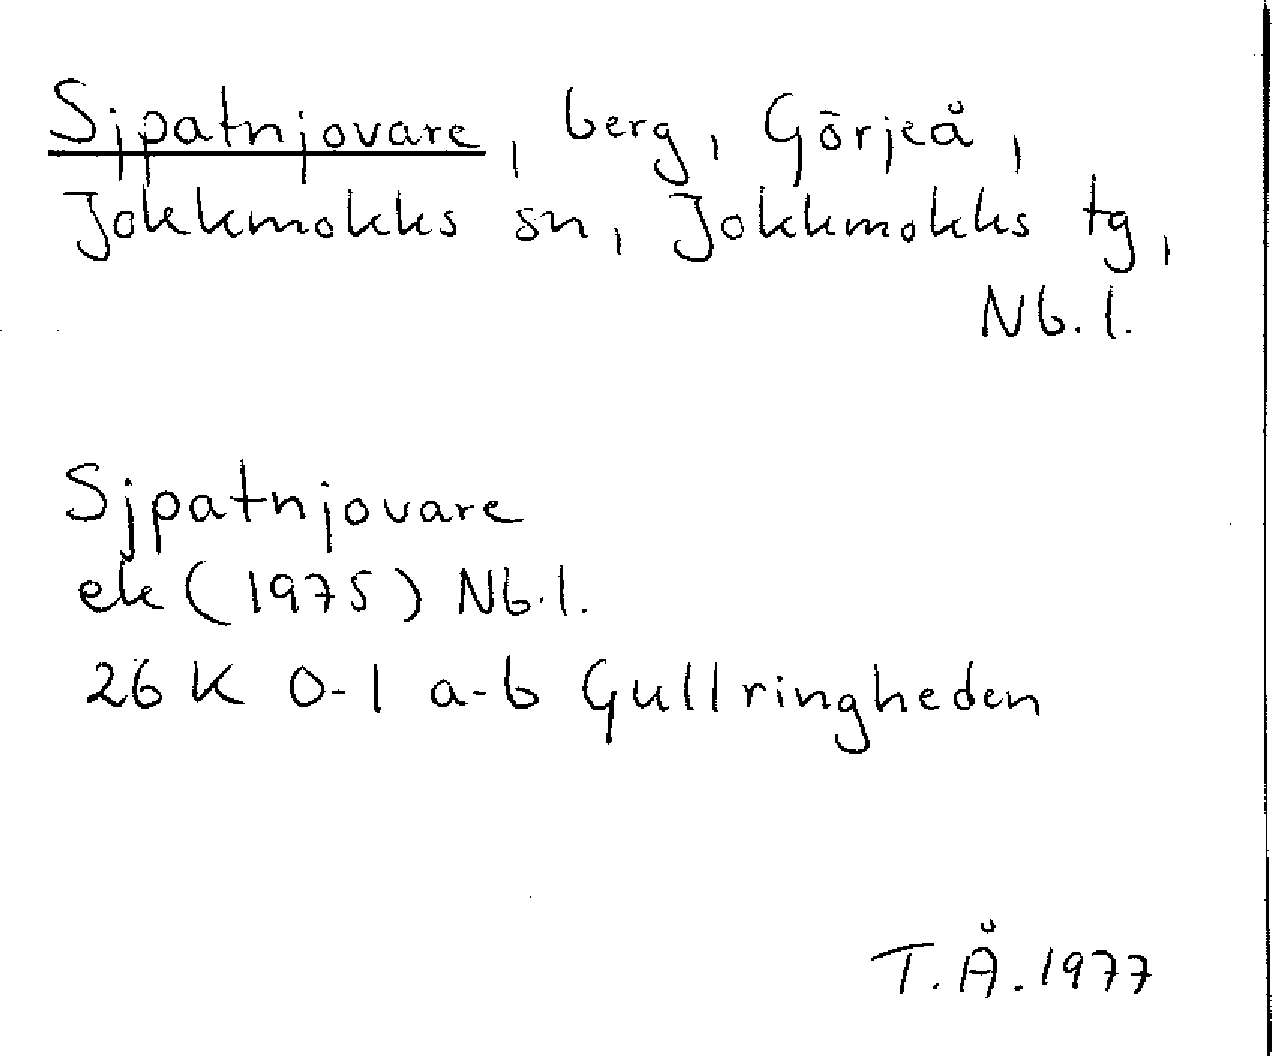 Sjpatnjovare, berg, Görjeå,
Jokkmokks sn, Jokkmokks tg,
Nb.l.
Sjpatnjovare
ek (1975) Nb.l.
26 K 0-1 a-b Gullringheden
T.Å. 1977